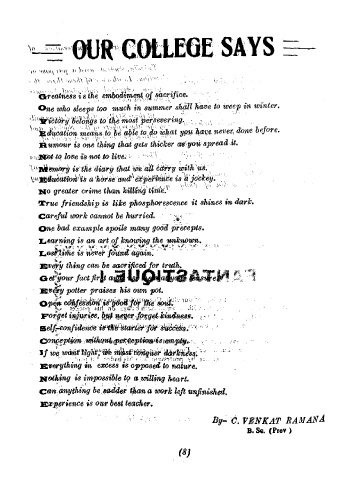 OUR COLLEGE SAYS
Greatness is the embodiment of sacrifice.
One who sleeps too much in summer shall have to weep in winter.
Victory belongs to the most persevering.
Education means to be able to do what you have never done before.
Rumour is one thing that gets thicker as you spread it.
Not to love is not to live.
Memory is the diary that we all carry with us.
Education is a horse and experience is a jockey.
No greater crime than killing time.
True friendship is like phosphorescence it shines in dark.
Careful work cannot be hurried.
One bad example spoils many good precepts.
Learning is an art of knowing the unknown.
Lost time is never found again.
Every thing can be sacrificed for truth.
Get your fact first
Every potter praises his own pot.
Open confession is good for the soul.
Forget injuries, but never forget kindness.
Self-confidence is the starter for success.
Conception without perception is empty.
If we want light, we must conquer darkness.
Everything in excess is opposed to nature.
Nothing is impossible to a willing heart.
Can anything be sadder than a work left unfinished.
Experience is our best teacher.
By- C. VENKAT RAMANA
B. Sc. (Prev)
(8)